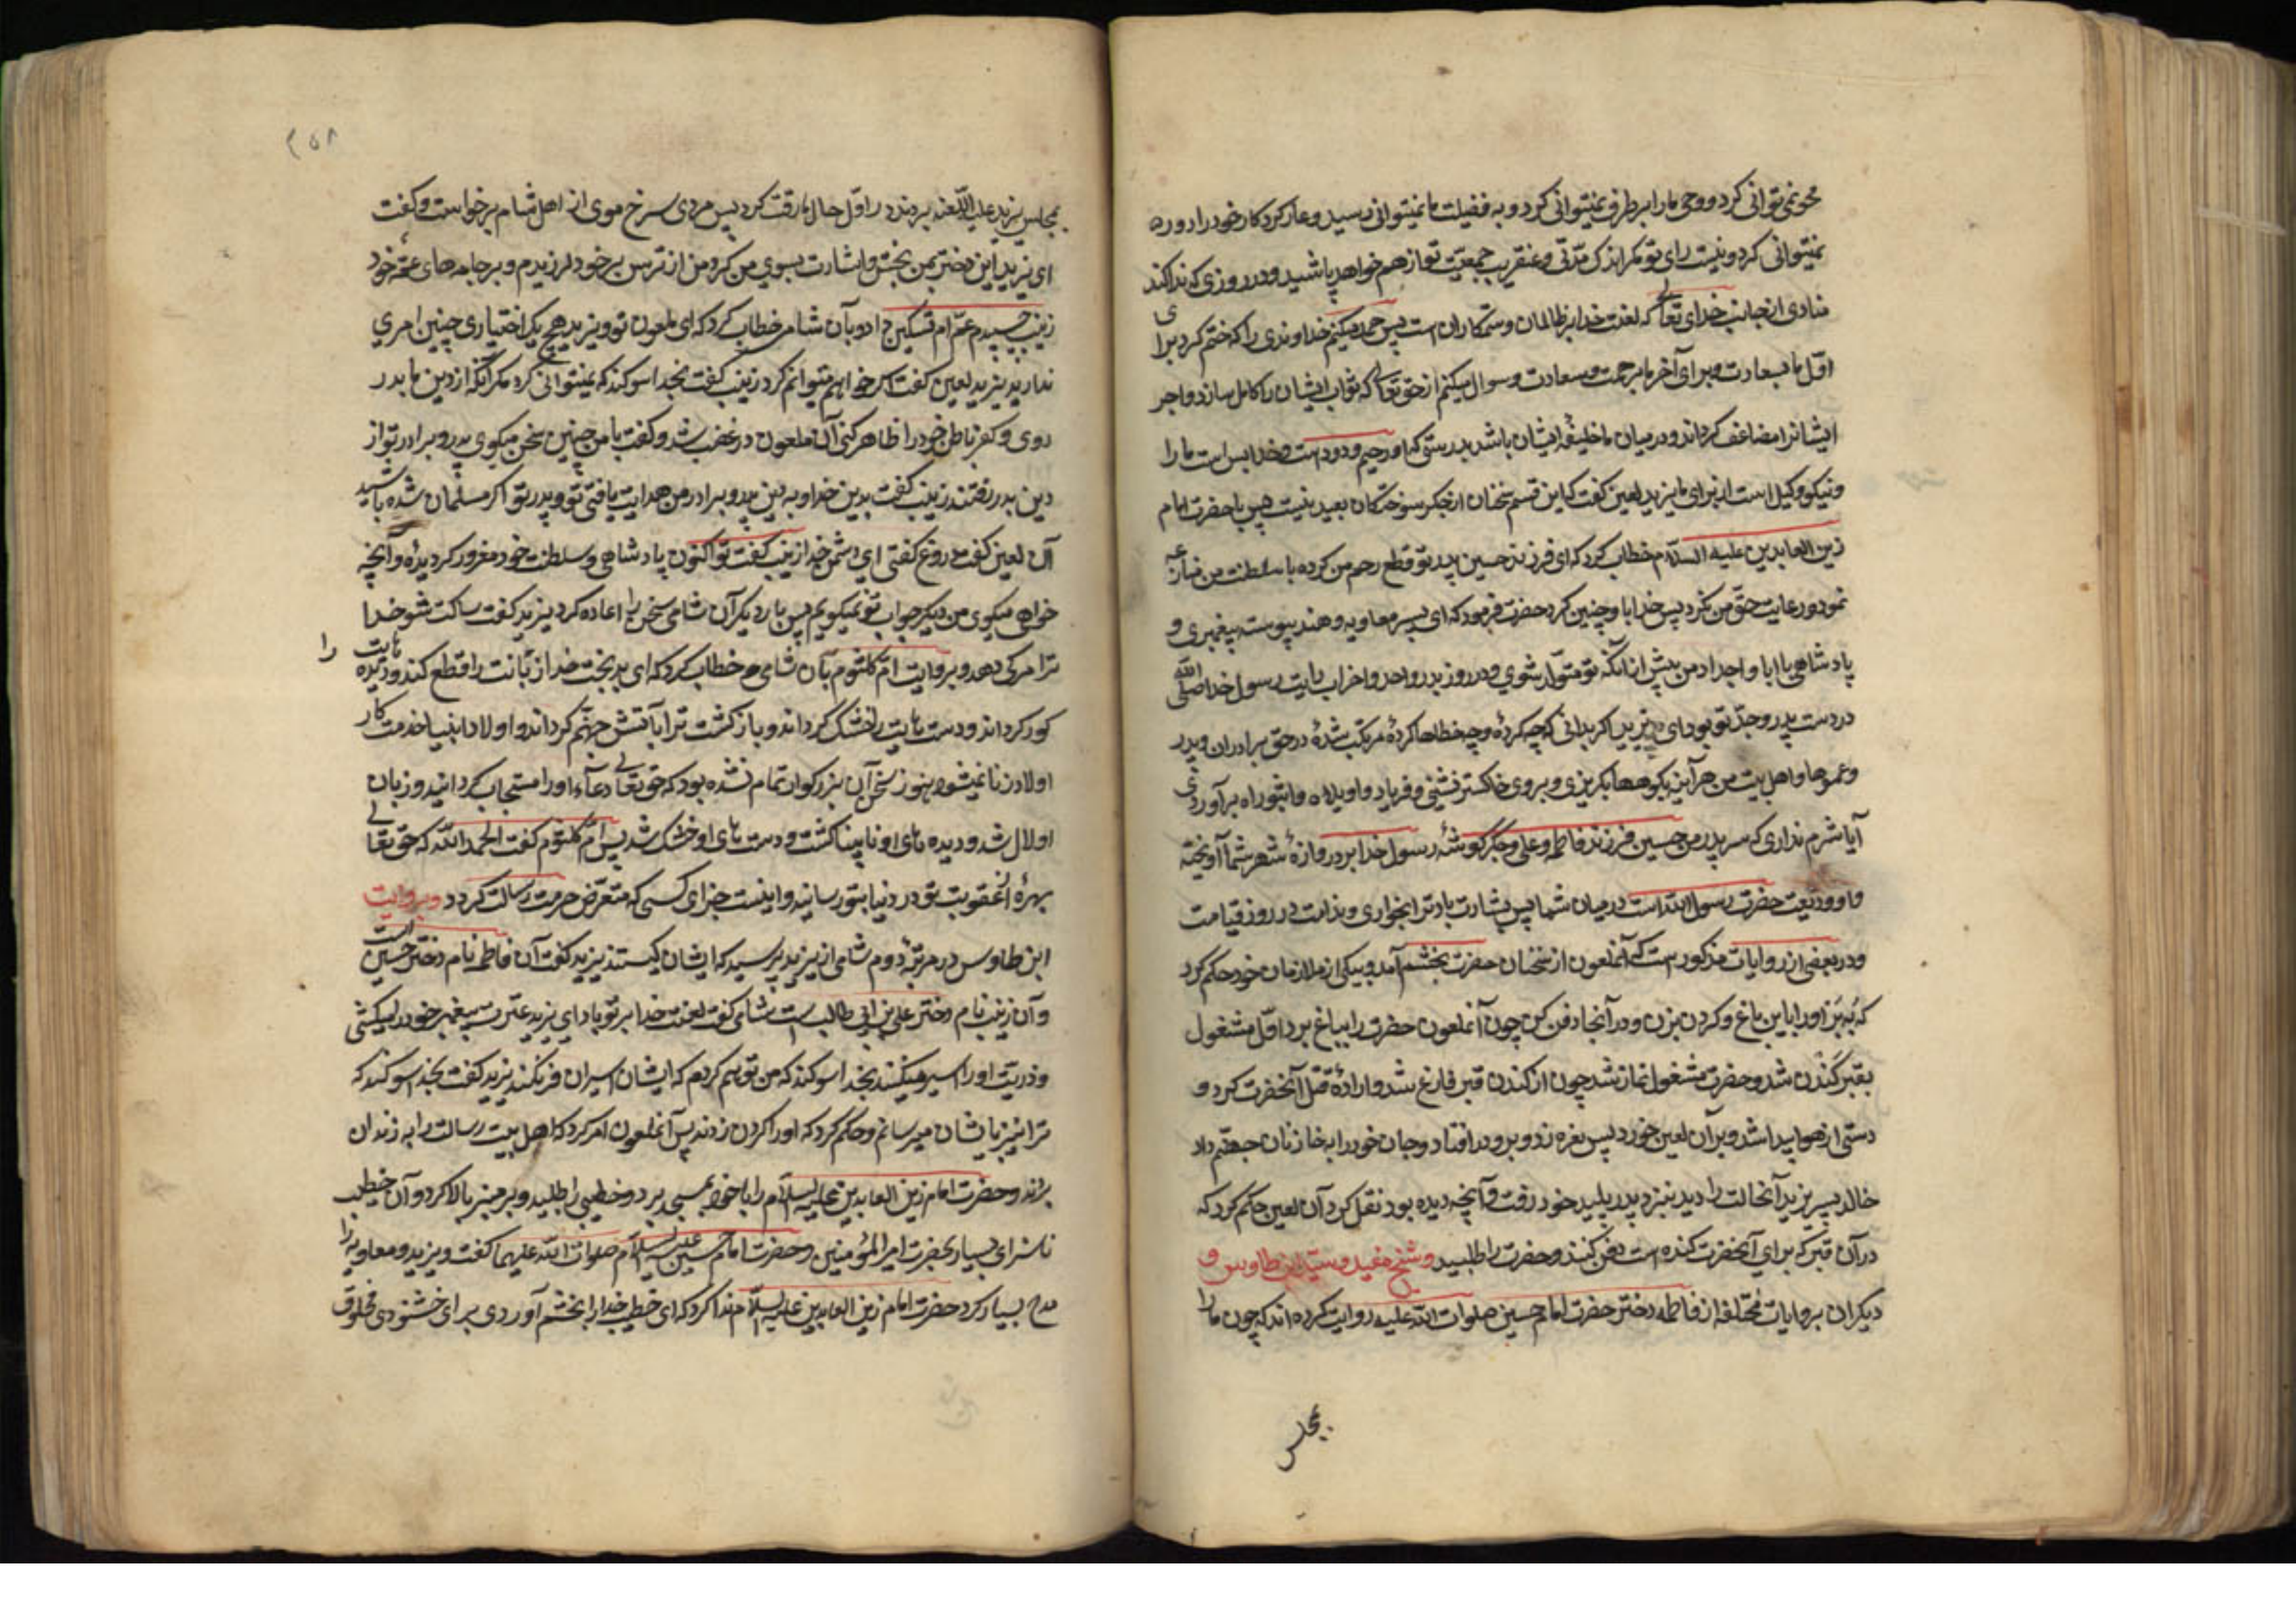 محو نمی‌توانی کرد و وحی ما را بر طرف نمیتوانی کرد و به فضیلت ما نمیتوانی رسید و عار کردکار خود را دور
نمیتوانی کرد و نیست رای تو مکر اندک مدّتی و عنقریب جمعیّت تو از هم خواهد پاشید و در روزی که ندا کند
منادی از جانب خدای تعالی که لعنت خدا بر ظالمان و ستمکاران است پس حمد میکنم خداوندی را که ختم کرد برای
اوّل ما بسعادت و برای آخر ما برحمت و سعادت و سوال میکنم از حق تعالی که ثواب ایشان را کامل سازد و اجر
ایشانرا مضاعف کرداند و در میان ما خلیفهٔ ایشان باشد بدرستی که او رحیم و ودود است و خدا بس است ما را
و نیکو وکیل است از برای ما یزید لعین گفت که این قسم سخنان از جکر سوختکان بعید نیست پس با حضرت امام
زین العابدین علیه السلام خطاب کرد که ای فرزند حسین پدر تو قطع رحم من کرده با سلطنت من منازعه
نمود و رعایت حق من نکرد پس خدا با او چنین کرد حضرت فرمود که ای پسر معاویه و هند پیوسته پیغمبری و
پادشاهی با ابا و اجداد من بیش از انکه تو متولد شوی و در روز بدر و احد و احزاب رایت رسول خدا صلی الله
در دست پدر و جدّ تو بود ای یزید اکر بدانی که چه کردهٔ و چه خطاها کردهٔ مرتکب شدهٔ در حق برادران و پدر
و عموها و اهل بیت من هر آینه بکوهها بکریزی و بر روی خاکستر نشینی و فریاد واویلاه و اثبوراه برآوردی
آیا شرم نداری که سر پدر من حسین فرزند فاطمه و علی و جکر کوشهٔ رسول خدا بر دروازهٔ شهر شما آویخته
و او ودیعت حضرت رسول الله است در میان شما پس بشارت باد ترا بخواری و ندامت در روز قیامت
و در بعضی از روایات مذکور است که آنملعون از سخنان حضرت بخشم آمد و بیکی از ملازمان خود حکم کرد
که بِه بَر او را باین باغ و کردن بزن و در آنجا دفن کن چون آنملعون حضرت را بباغ برد اوّل مشغول
بقبر کَندن شد و حضرت مشغول نماز شد چون از کندن قبر فارغ شد و ارادهٔ قتل آنحضرت کرد و
دستی از هوا پیدا شد و بر آن لعین خورد پس نعره زد و برو در افتاد و جان خود را بخازنان جهنّم داد
خالد پسر یزید آنحالت را دید بنزد پدر پلید خود رفت و آنچه دیده بود نقل کرد آن لعین حکم کرد که
در آن قبر که برای آنحضرت کنده است دفن کنند و حضرت را طلبید و شیخ مفید و سیّد ابن طاوس و
دیکران بروایات مختلفه از فاطمه دختر حضرت امام حسین صلوات الله علیه روایت کرده اند که چون ما را
بمجلس
۲۵۸
بمجلس یزید علیه اللّعنه بردند در اوّل حال بما رقت کرد پس مردی سرخ موی از اهل شام برخواست و گفت
ای یزید این دختر بمن بخش و اشارت بسوی من کرد و من از ترس بر خود لرزیدم و بر جامه های عمّهٔ خود
زینب چسپیدم عمّه ام تسکین داد و بآن شامی خطاب کرد که ای ملعون تو و یزید هیچ یک اختیاری چنین امری
ندارید یزید لعین گفت اکر خواهم میتوانم کرد زینب گفت بخدا سوکند که نمیتوانی کرد مکر آنکه از دین ما بدر
روی و کفر باطن خود را ظاهر کنی آن ملعون در غضب شد و گفت با من چنین سخن میکوی پدر و برادر تو از
دین بدر رفتند زینب گفت بدین خدا و به دین پدر و برادر من هدایت یافتی تو و پدر تو اکر مسلمان شده باشید
آن لعین گفت دروغ گفتی ای دشمن خدا زینب گفت تو اکنون پادشاهی و سلطنت خود مغرور کردیدهٔ و آنچه
خواهی میکوی من دیکر جواب تو نمیکویم پس بار دیکر آن شامی سخن را اعاده کرد یزید گفت ساکت شو خدا
ترا مرک دهد و بروایت امّ کلثوم بآن شامی خطاب کرد که ای بدبخت خدا زبانت را قطع کند و دیده هایت را
کور کرداند و دست هایت را خشک کرداند و باز کشت ترا بآتش جهنّم کرداند و اولاد انبیا خدمت کار
اولاد زنا نمیشوند هنوز سخن آن بزرکوار تمام نشده بود که حق تعالی دعآء او را مستجاب کردانید و زبان
او لال شد و دیده های او نابینا کشت و دست های او خشک شد پس امّ کلثوم گفت الحمد الله که حق تعالی
بهرهٔ از عقوبت تو در دنیا بتو رسانید و اینست جزای کسی که متعرّض حرمت رسالت کردد و بروایت
ابن طاوس در مرتبهٔ دوم شامی از یزید پرسید که ایشان کیستند یزید گفت آن فاطمه نام دختر حسین است
و آن زینب نام دختر علی بن ابی طالب است شامی گفت لعنت خدا بر تو باد ای یزید عترت پیغمبر خود را میکشی
و ذریّت او را اسیر میکنی بخدا سوکند که من توهم کردم که ایشان اسیران فرنکند یزید گفت بخدا سوکند که
ترا نیز بایشان میرسانم و حکم کرد که او را کردن زدند پس آنملعون امر کرد که اهل بیت رسالت را به زندان
برند و حضرت امام زین العابدین علیه السلام را با خود بمسجد برد و خطیبی را طلبید و بر منبر بالا کرد و آن خطیب
ناسزای بسیار بحضرت امیر المؤمنین و حضرت امام حسین علیه السلام صلوات الله علیهما گفت و یزید و معاویه را
مدح بسیار کرد حضرت امام زین العابدین علیه السلام ندا کرد که ای خطیب خدا را بخشم آوردی برای خشنودی مخلوق